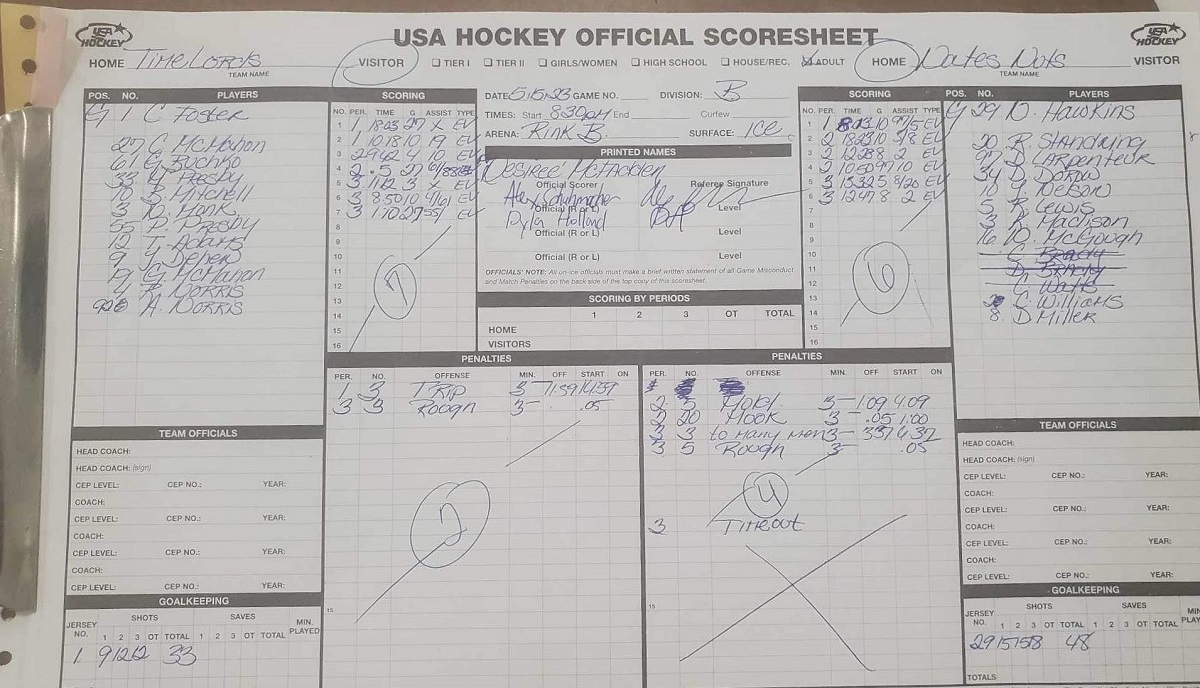 USA HOCKEY
USA HOCKEY OFFICIAL SCORESHEET
USA HOCKEY
HOME Time Lords VISITOR
TEAM NAME
☐ TIER I ☐ TIER II ☐ GIRLS/WOMEN ☐ HIGH SCHOOL ☐ HOUSE/REC. ☑ ADULT
HOME Dates Nuts VISITOR
TEAM NAME
POS. NO. PLAYERS
G 1 C Foster
27 C. McMahon
61
33 Presby
10 B. Mitchell
3 Hank
55 P. Presby
12 T. Adams
9
19 G McMahon
4 Norris
A. Norris
SCORING
NO. PER. TIME G ASSIST TYPE
1 1 18:03 27 X EV
2 1 10:18 10 19 EV
3 2 9:42 4 10 EV
4 2 .5 27
5 3 11:12 3 X EV
6 3 8:50 10 4/61 EV
7 3 1:10 27 55/ EV
8
9
10
11
12
13
14
15
16
7
DATE 5/5/23 GAME NO. DIVISION: B
TIMES: Start 8:30pm End Curfew
ARENA: Rink B SURFACE: ICE
PRINTED NAMES
Desiree McFadden
Official Scorer Referee Signature
Alex Schuhmacher
Official (R or L) Level
Dyla Holland
Official (R or L) Level
Official (R or L) Level
OFFICIALS' NOTE: All on-ice officials must make a brief written statement of all Game Misconduct
and Match Penalties on the back side of the top copy of this scoresheet.
SCORING BY PERIODS
1 2 3 OT TOTAL
HOME
VISITORS
SCORING
NO. PER. TIME G ASSIST TYPE
1 1 10 97/5 EV
2 2 18:23 10 5/8 EV
3 2 12:28 8 2 EV
4 2 10:50 97 10 EV
5 3 15:32 5 8/20 EV
6 3 12:47 8 2 EV
7
8
9
10
11
12
13
14
15
16
6
POS. NO. PLAYERS
G 29 D. Hawkins
20 R. Standring
97 D. Carpenteur
34 D. Dorow
10 Y. Nelson
5 R. Lewis
3 K. Madison
16 McGough
C Brachy
D. Brachy
C Watts
C. Williams
8. D Miller
PENALTIES
PER. NO. OFFENSE MIN. OFF START ON
1 3 Trip 3 - 7:59 14:59
3 3 Rough 3 - . .05
2
15
PENALTIES
PER. NO. OFFENSE MIN. OFF START ON
2 5 Hold 3 - 1:09 4:09
2 20 Hook 3 - .05 1:00
3 3 to many men 3 - 3:37 6:37
3 5 Rough 3 .05
4
3 Timeout
15
TEAM OFFICIALS
HEAD COACH:
HEAD COACH: (sign)
CEP LEVEL: CEP NO.: YEAR:
COACH:
CEP LEVEL: CEP NO.: YEAR:
COACH:
CEP LEVEL: CEP NO.: YEAR:
COACH:
CEP LEVEL: CEP NO.: YEAR:
GOALKEEPING
JERSEY NO. SHOTS SAVES MIN. PLAYED
1 2 3 OT TOTAL 1 2 3 OT TOTAL
1 9 12 12 33
TEAM OFFICIALS
HEAD COACH:
HEAD COACH: (sign)
CEP LEVEL: CEP NO.: YEAR:
COACH:
CEP LEVEL: CEP NO.: YEAR:
COACH:
CEP LEVEL: CEP NO.: YEAR:
COACH:
CEP LEVEL: CEP NO.: YEAR:
GOALKEEPING
JERSEY NO. SHOTS SAVES
1 2 3 OT TOTAL 1 2 3 OT TOTAL
29 15 15 18 48
TOTALS